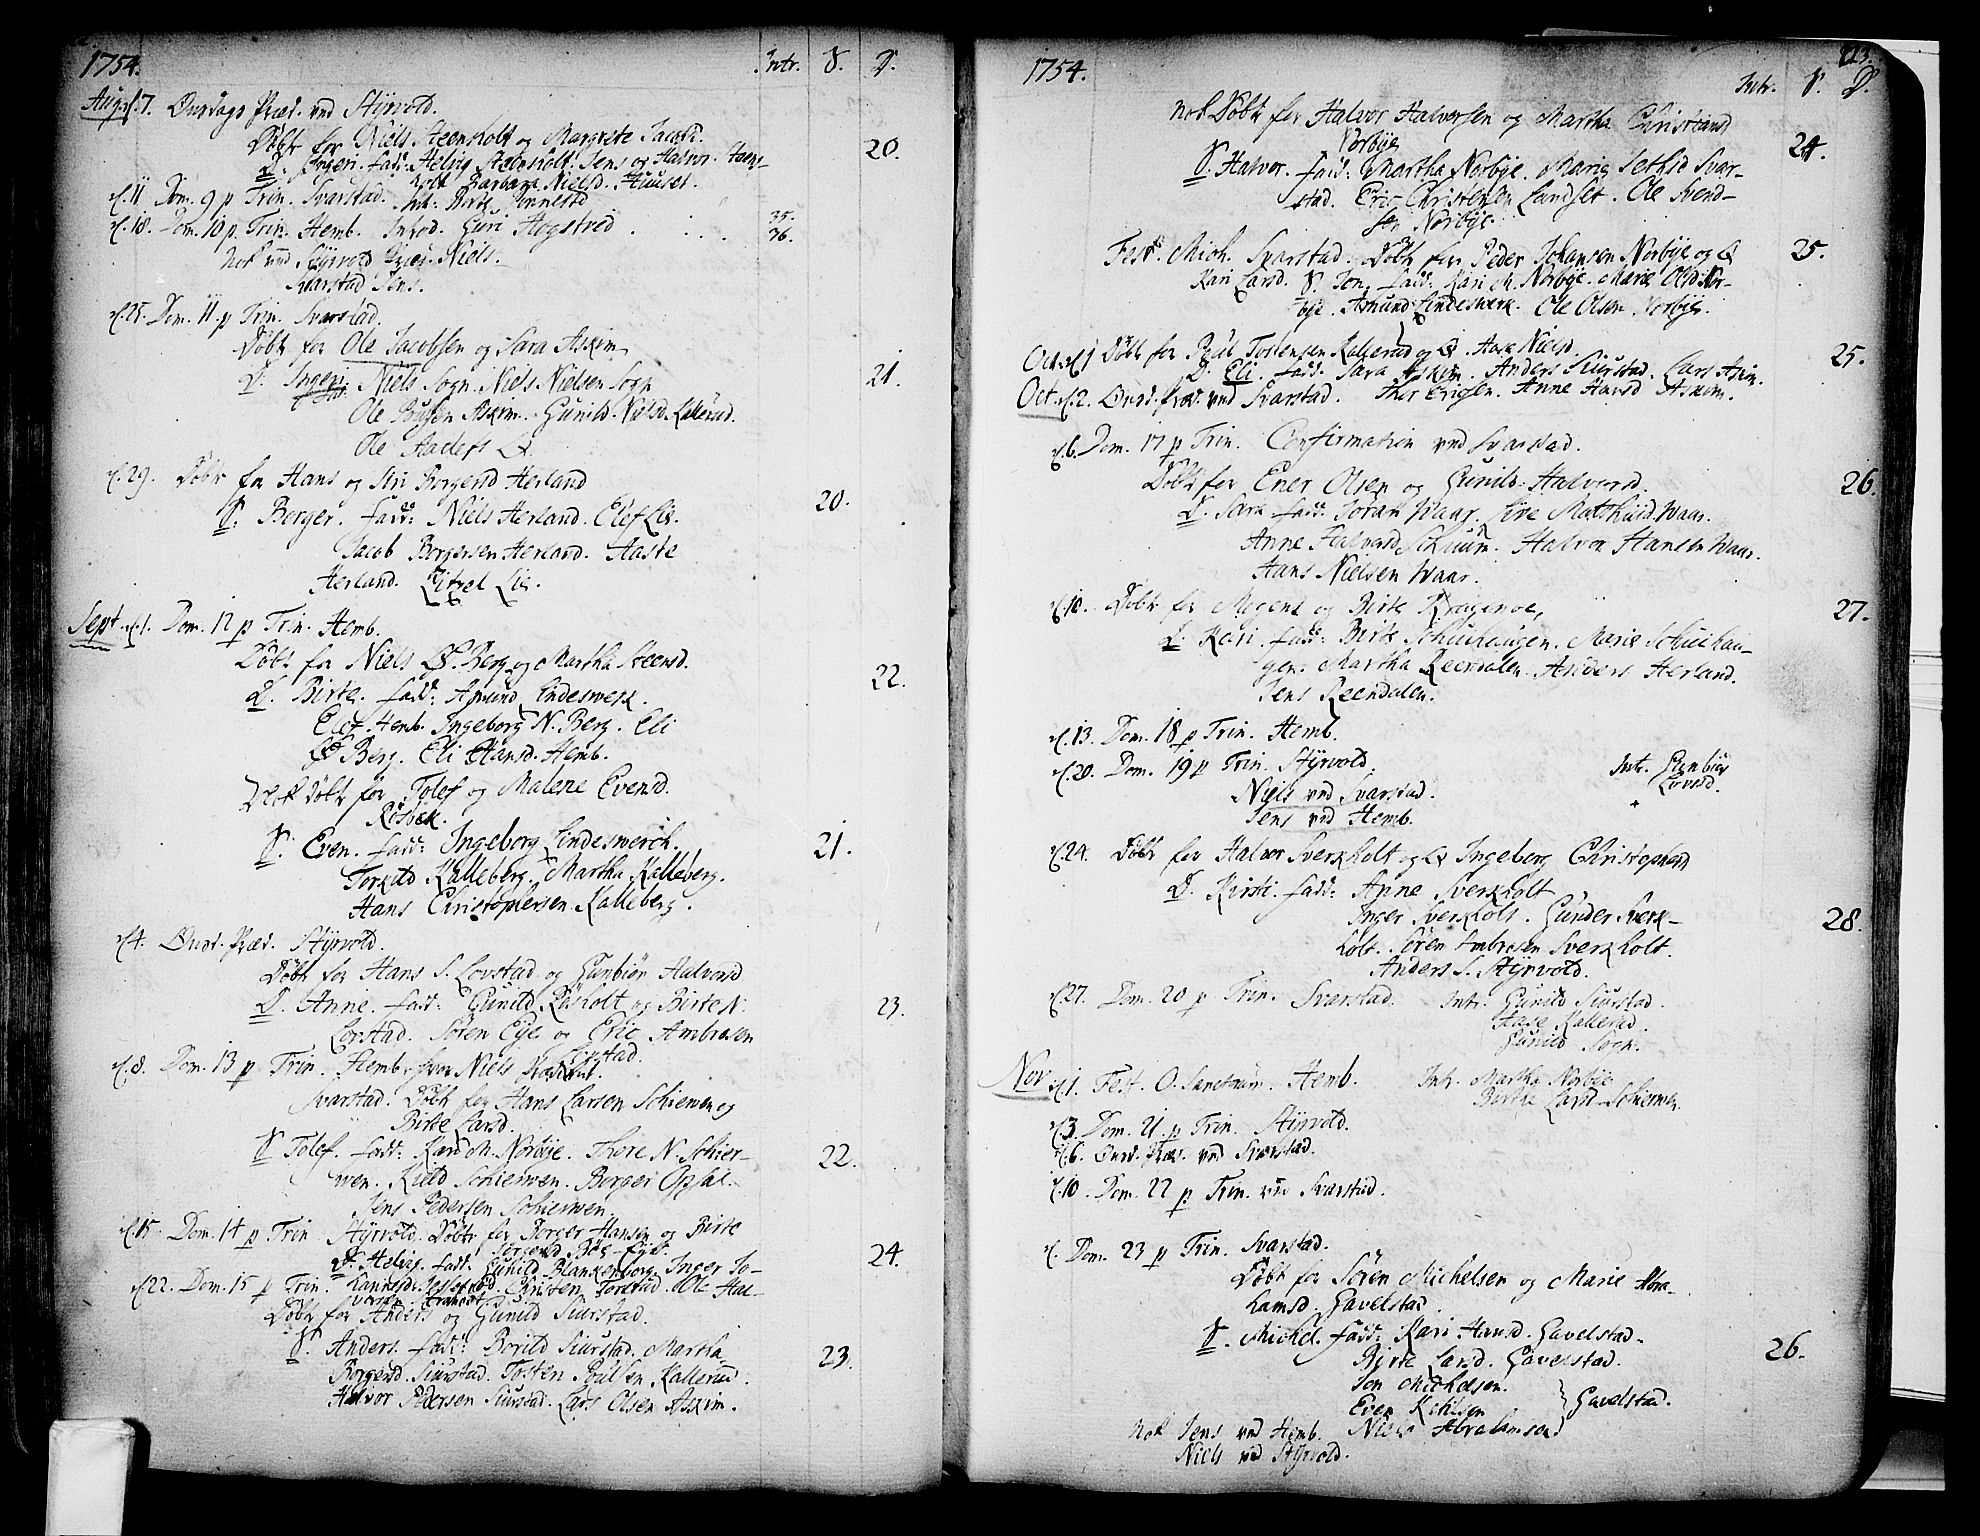 1754. Intr. S. D.
Aug. d. 7. Onsdags Præd. ved Styrvold.
Døbt for Niels Steensholt og Margrete Jacobd.
D. Ingeri. fadd: Helvig Steensholt. Jens og Halvor Steens-
holt Barbara Nielsd. Huuset. 20.
d. 11 Dom. 9 p Trin. Svarstad. Intr. Birte Rønnestad 35.
d. 18. Dom. 10 p. Trin. Hemb. Introd. Guri Hogstved 36.
Nok ved Styrvold Præd. Niels.
Svarstad Jens.
d. 25. Dom. 11. p Trin. Svarstad.
Døbt for Ole Jacobsen og Sara Askim
D. Ingeri. Niels Sogn. Niels Nielsen Sogn 21.
Ole Askim. Gunild Nielsd. Kallerud.
Ole
d. 29. Døbt for Hans og Siri Borgersd Herland
S. Borger. fadd: Niels Herland. Elef Lie. 20.
Jacob Borgersen Herland. Aaste
Herland. Lie.
Sept. d. 1. Dom. 12 p Trin. Hemb.
Døbt for Niels Ø. Berg og Martha Steensd.
D. Birte. fadd: Amund Lindeswerk. 22.
Elef Hemb. Ingeborg N. Berg. Eli
Ø Berg. Eli Hansd. Hemb.
Nok Døbt for Tolef og Malene Evensd.
Røsbek.
S. Even. fadd: Ingeborg Lindeswerch. 21.
Torkild Kalleberg. Martha Kalleberg.
Hans Christophersen Kalleberg.
d. 4. Onsd. Præd. Styrvold.
Døbt for Hans S. Lovstad og Gunbiør Halvorsd
D. Anne. fadd: Gunild Røsholt og Birte N. 23.
Lovstad. Søren Eye og Eric Ambrosen
Lovstad.
d. 8. Dom. 13 p Trin. Hemb. hvor Niels
Svarstad. Døbt for Hans Larsen Schierwen og
Birte Larsd.
S Tolef. fadd: Kari M. Norbye. Thore N. Schier- 22.
wen. Kield Schierwen. Borger Opsal.
Jens Pedersen Schierwen.
d. 15. Dom. 14 p Trin Styrvold. Døbt for Borger Hansen og Birte
D. Helvig. fadd: Gunild Blankenborg. Inger Jo- 24.
d. 22. Dom. 15 p Trin. Christen Torstad. Ole Hal-
Døbt for Anders og Gunild Siurstad.
S. Anders. fadd: Borild Siurstad. Martha 23.
Borgersd. Siurstad. Tosten Poulsen Kallerud.
Halvor Pedersen Siurstad. Lars Olsen Askim.
1754. 113.
Intr. S. D.
Nok Døbt for Halvor Halvorsen og Martha Christiand
Norbye 24.
S. Halvor. fadd: Martha Norbye. Marie Svar-
stad. Eric Christensen Landset. Ole Svend-
sen Norbye.
Fest. Mich. Svarstad. Døbt for Peder Johansen Norbye og Q 25.
Kari Larsd. S. Jon. fadd: Kari M. Norbye. Marie Olsd Nor-
bye. Amund Lindeswerk. Ole Olsen Norbye.
Oct. d. 1 Døbt for Poul Tostensen Kallerud og Q. Aase Nielsd. 25.
D. Eli. fadd: Sara Askim. Anders Siurstad. Lars Askim.
Oct. d. 2. Onsd. Præd. ved Svarstad. Thor Ericsen. Anne Hansd Askim.
d. 6. Dom. 17 p Trin. Confirmation ved Svarstad.
Døbt for Ener Olsen og Gunild Halvorsd. 26.
D. Sara fadd: Joran Waar. Sire Waar.
Anne Halvorsd Schuum. Halvor Hansen Waar.
Hans Nielsen Waar.
d. 10. Døbt for Mogens og Birte 27.
D. Kari. fadd: Birte Schuehaugen. Marie Schuehau-
gen. Martha Reendalen. Anders Herland.
Jens Reendalen.
d. 13. Dom. 18 p Trin. Hemb.
d. 20. Dom. 19 p Trin. Styrvold. Intr. Gunbiør
Lovstd.
Niels ved Svarstad.
Jens ved Hemb.
d. 24. Døbt for Halvor Sverkholt og Q Ingeborg Christophersd
D. Kirsti. fadd: Anne Sverkholt
Inger Sverkholt. Gunder Sverk- 28.
holt. Søren Ambrosen Sverkholt.
Anders S. Styrvold.
d. 27. Dom. 20 p Trin. Svarstad. Intr. Gunild Siurstad.
Aase Kallerud.
Gunild Sogn.
Nov. d. 1. Fest. O. Sanctorum. Hemb. Intr. Martha Norbye
Birthe Larsd Schierwen.
d. 3. Dom. 21. p Trin. Styrvold.
d. 6. Onsd. Præd. ved Svarstad.
d. 10. Dom. 22 p Trin. ved Svarstad.
d. Dom. 23 p Trin. Svarstad.
Døbt for Søren Michelsen og Marie Abra-
hamsd. Gavelstad.
S. Michel. fadd: Kari Hansd. Gavelstad. 26.
Birte Larsd. Gavelstad.
Jon Michelsen.
Even Ketilsen } Gavelstad.
Nok Jens ved Hemb. Niels Abrahamsen
Niels ved Styrvold.